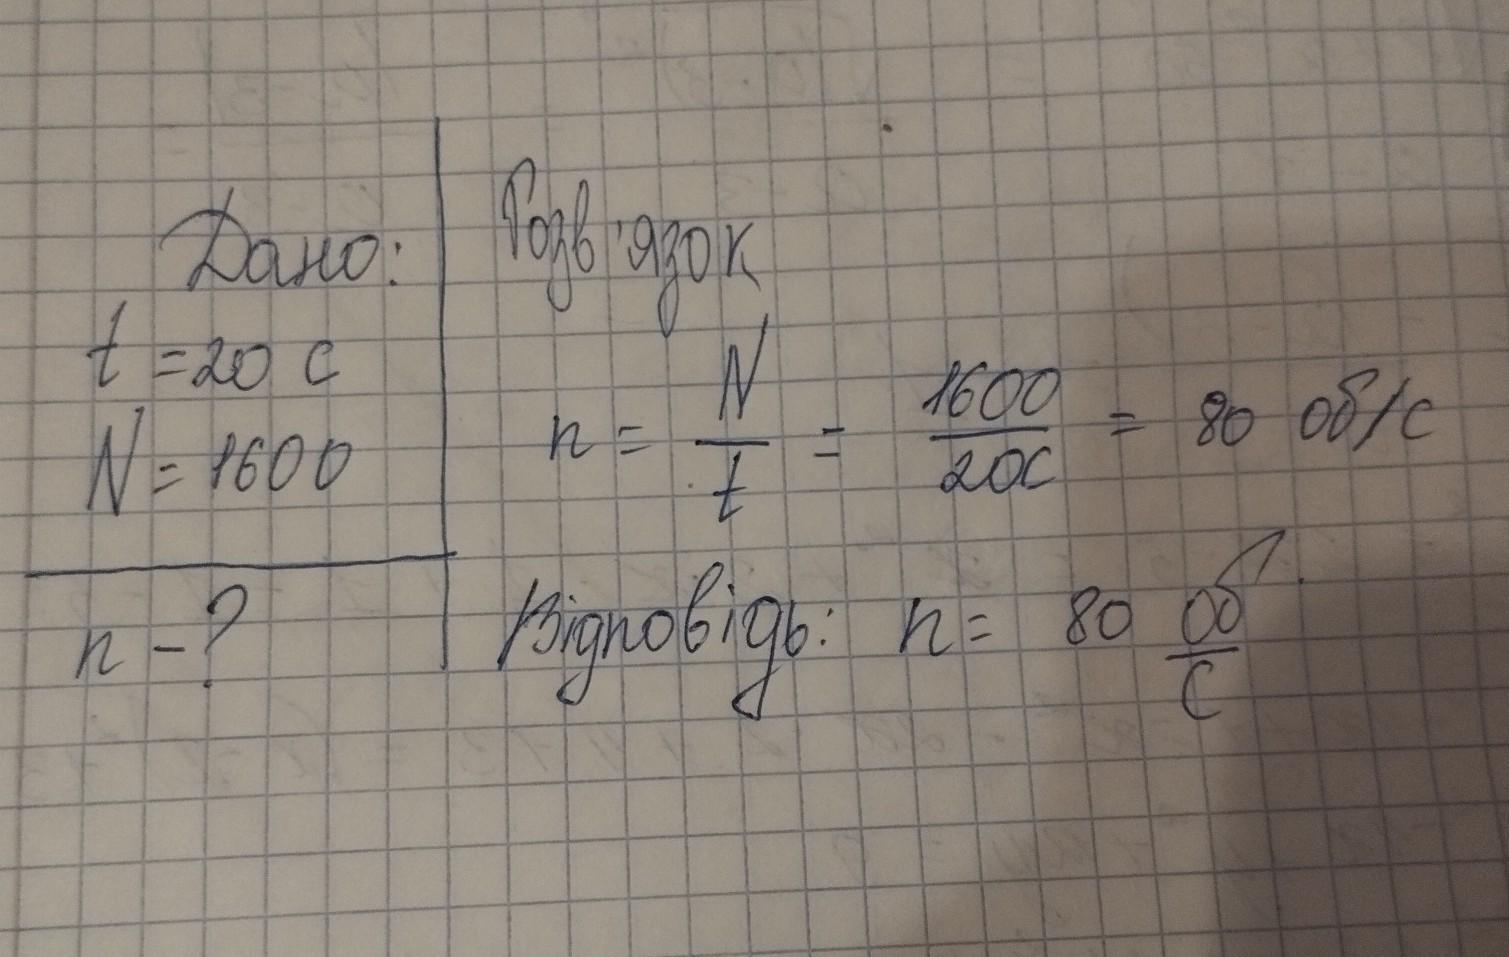 Дано:
t = 20 с
N = 1600
n - ?
Розв'язок
n = N/t = 1600/20с = 80 об/с
Відповідь: n = 80 об/с